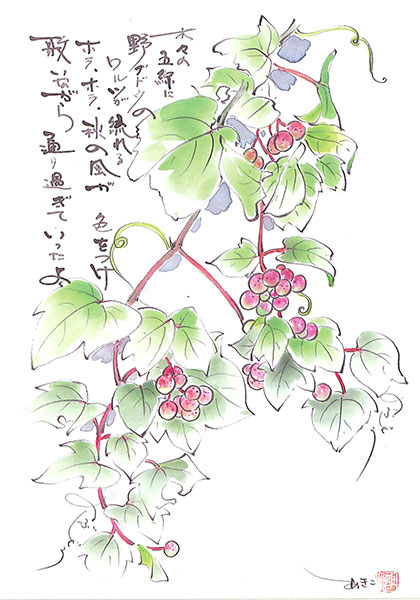 木々の
五線に
野ブドウの
ワルツが流れる
ホラ、ホラ、秋の風が
色をつけ
歌いながら 通り過ぎていったよ